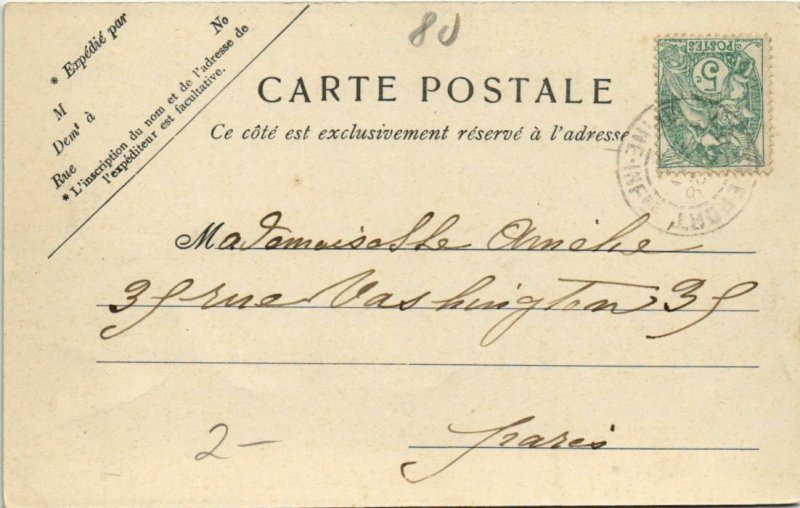 * Expédié par No
M
Demt à
Rue
* L'inscription du nom et de l'adresse de
l'expéditeur est facultative.
80
CARTE POSTALE
Ce côté est exclusivement réservé à l'adresse
POSTES
5c
Mademoiselle Amélie
35 rue Vashington 35
2-
Paris